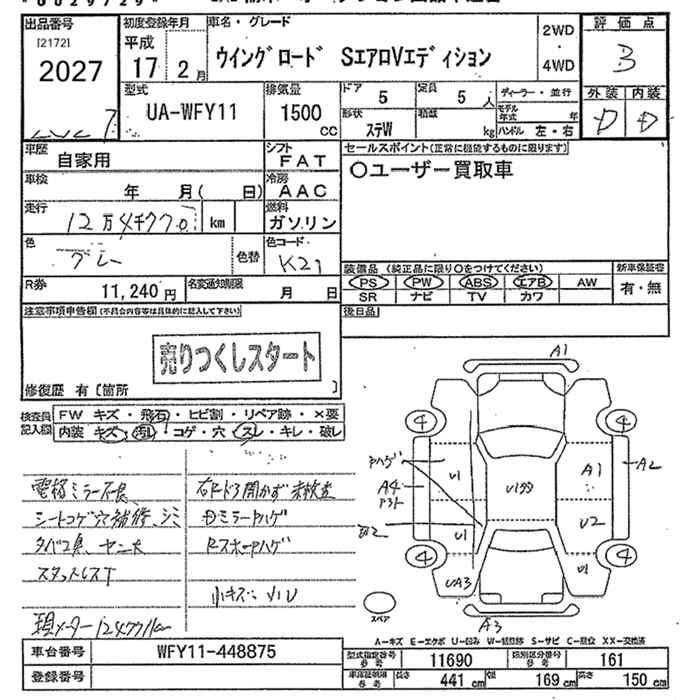 出品番号
[2172]
2027
初度登録年月
平成
17年 2月
車名・グレード
ウイングロード SエアロVエディション
2WD
4WD
評価点
B
外装 内装
D D
型式
UA-WFY11
排気量
1500
cc
ドア 5
定員 5人
形状 ステW
積載 kg
ディーラー・並行
モデル年式 年
ハンドル 左・右
車歴 自家用
シフト FAT
車検 年 月( 日)
冷房 AAC
走行 12万4千770 km
燃料 ガソリン
色 グレー
色替
色コード K21
R券 11,240円
名変通知期限 月 日
セールスポイント(正常に機能するものに限ります)
〇ユーザー買取車
装備品 (純正品に限り〇をつけてください)
PS PW ABS エアB AW
SR ナビ TV カワ
新車保証書
有・無
後日品
注意事項申告欄(不具合内容等は具体的に記入して下さい)
売りつくしスタート
修復歴 有〔箇所 〕
検査員記入欄
FW キズ・飛石・ヒビ割・リペア跡・×要
内装 キズ・汚れ・コゲ・穴・スレ・キレ・破レ
電格ミラー不良
シートコゲ穴補修、シミ
タバコ臭、ヤニ大
スタットレスT
現メーター124771km
右Rドア開かず未検査
Rスポイラーハゲ
小キズ
A1
4
4
ハゲ
A4
U1
U199
A1
A2
U1
U2
4
4
UA3
U1
スペア
A3
A-キズ E-エクボ U-凹み W-補修跡 S-サビ C-腐食 XX-交換済
車台番号 WFY11-448875
登録番号
型式指定番号 参考 11690
類別区分番号 参考 161
車体証明長 参考 長さ 441cm 幅 169cm 高さ 150cm